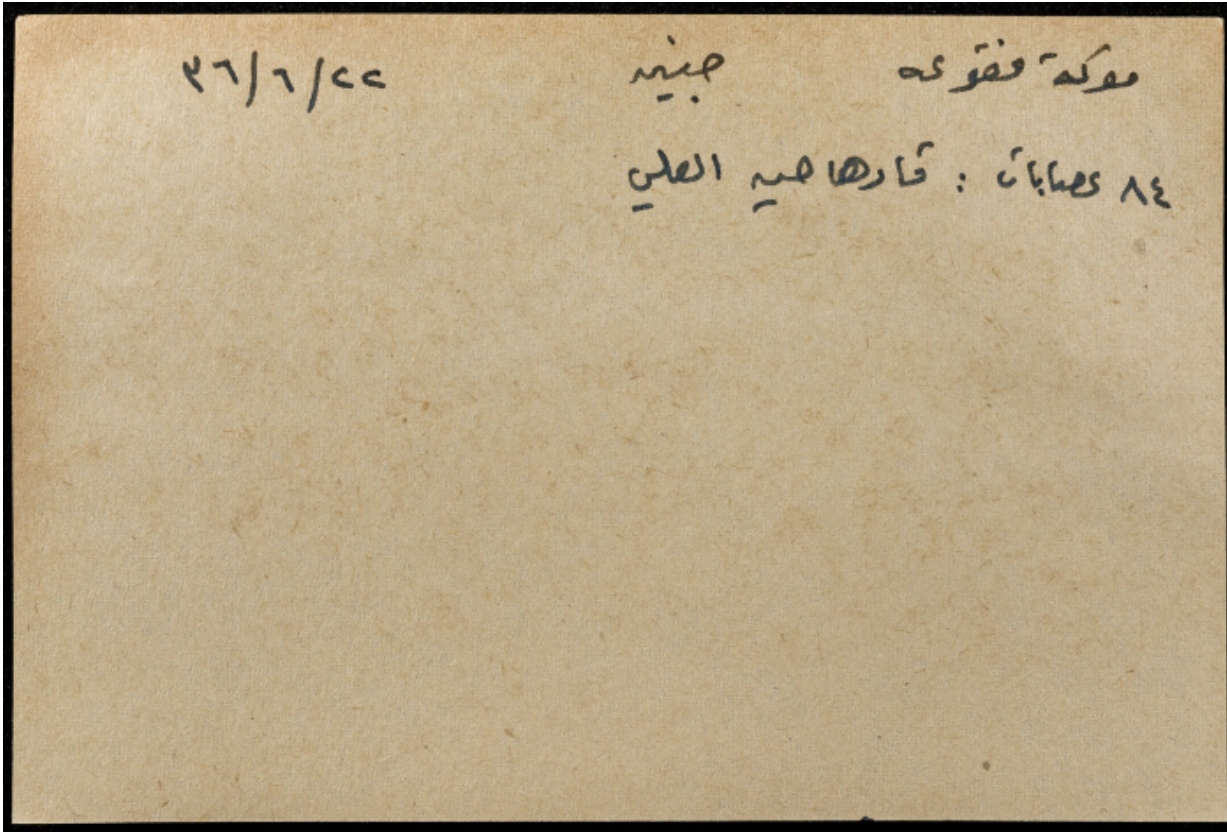 معركة فقوعه جنين ٢٢/٦/٣٦
٨٤ عصابات : قادها حسن العلي